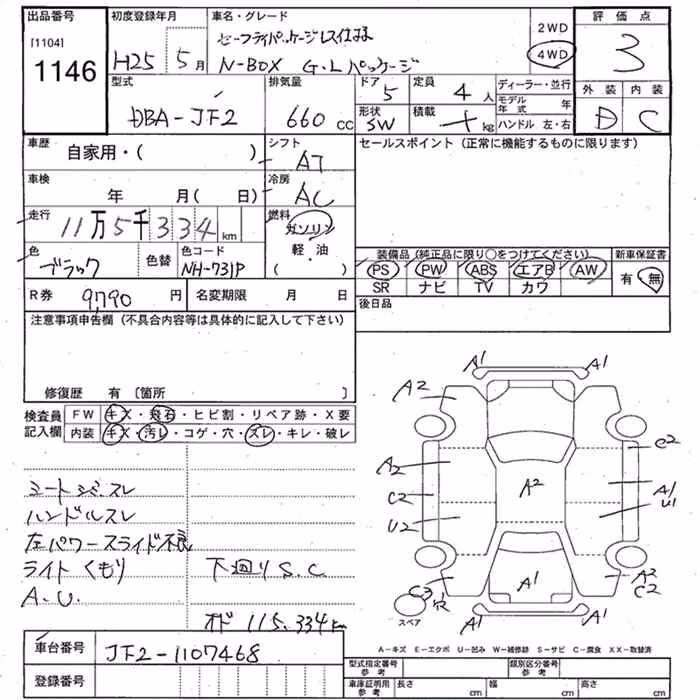 出品番号
[1104]
1146
初度登録年月
H25 5月
車名・グレード
セーフティパッケージレス仕様
N-BOX G・Lパッケージ
2WD
4WD
評価点
3
外装 内装
D C
型式
DBA-JF2
排気量
660 cc
ドア 5
形状 SW
定員 4 人
積載 kg
ディーラー・並行
モデル年式 年
ハンドル 左・右
車歴 自家用・( )
シフト AT
セールスポイント (正常に機能するものに限ります)
車検 年 月( 日)
冷房 AC
走行 11万5千334km
燃料 ガソリン
軽・油
( )
色 ブラック
色替
色コード NH-731P
装備品 (純正品に限り○をつけてください)
PS PW ABS エアB AW
SR ナビ TV カワ
新車保証書
有・無
R券 9,790 円
名変期限 月 日
後日品
注意事項申告欄 (不具合内容等は具体的に記入して下さい)
修復歴 有 〔箇所 〕
検査員記入欄
FW キズ・飛石・ヒビ割・リペア跡・X要
内装 キズ・汚レ・コゲ・穴・スレ・キレ・破レ
シートシミ、スレ
ハンドルスレ
左パワースライド不良
ライトくもり 下廻りS.C
A.U.
オド 115,334km
A1 A1
A2 A2
C2
A2
C2 A2 A1
U1
U2
C3 A1 A2
C2
A1 A1
スペア
A-キズ E-エクボ U-凹み W-補修跡 S-サビ C-腐食 XX-取替済
車台番号 JF2-1107468
登録番号
型式指定番号 参考
類別区分番号 参考
車庫証明用 参考 長さ cm 幅 cm 高さ cm